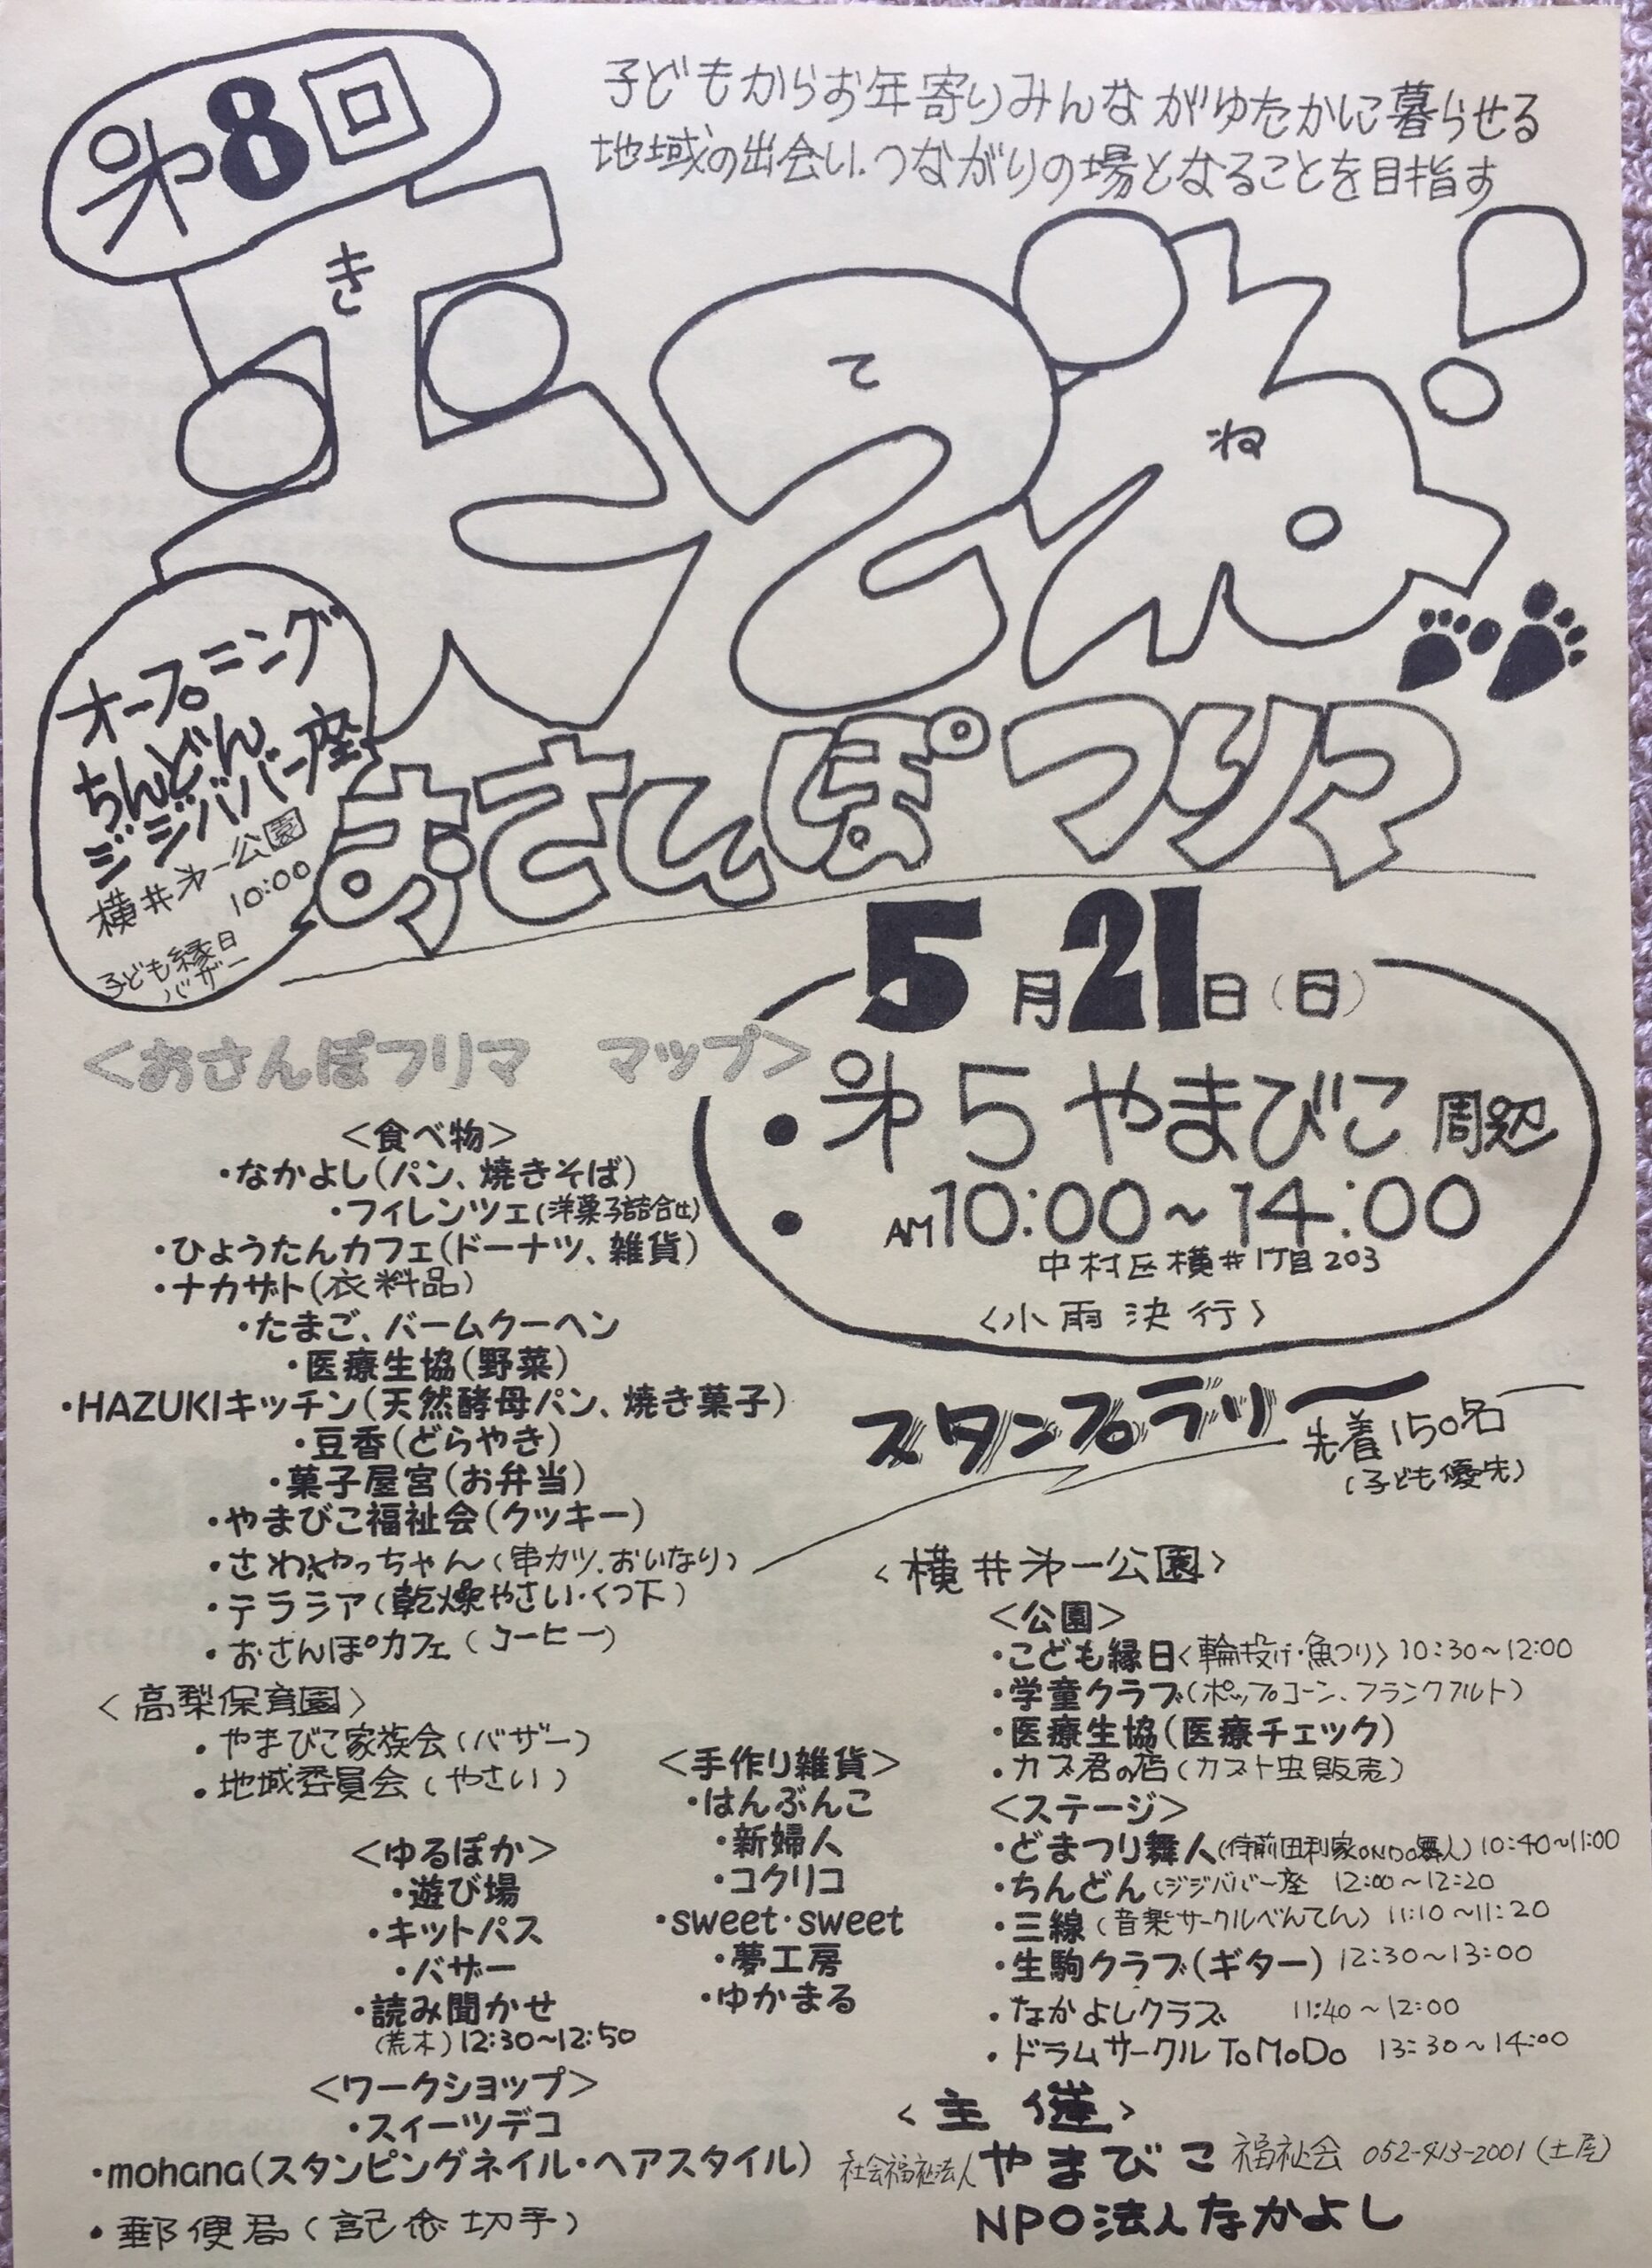 第8回
子どもからお年寄りみんながゆたかに暮らせる
地域の出会い、つながりの場となることを目指す
きてね!
おさんぽフリマ
オープニング
ちんどん
ジジババー座
横井第一公園
10:00
子ども縁日
バザー
5月21日(日)
・第5やまびこ周辺
・AM10:00~14:00
中村区横井1丁目203
<小雨決行>
<おさんぽフリマ マップ>
<食べ物>
・なかよし(パン、焼きそば)
・フィレンツェ(洋菓子詰合せ)
・ひょうたんカフェ(ドーナツ、雑貨)
・ナカザト(衣料品)
・たまご、バームクーヘン
・医療生協(野菜)
・HAZUKIキッチン(天然酵母パン、焼き菓子)
・豆香(どらやき)
・菓子屋宮(お弁当)
・やまびこ福祉会(クッキー)
・さわやっちゃん(串カツ、おいなり)
・テラシア(乾燥やさい・くつ下)
・おさんぽカフェ(コーヒー)
<高梨保育園>
・やまびこ家族会(バザー)
・地域委員会(やさい)
<ゆるぽか>
・遊び場
・キットパス
・バザー
・読み聞かせ
(荒木)12:30~12:50
<ワークショップ>
・スィーツデコ
・mohana(スタンピングネイル・ヘアスタイル)
・郵便局(記念切手)
<手作り雑貨>
・はんぶんこ
・新婦人
・コクリコ
・sweet・sweet
・夢工房
・ゆかまる
スタンプラリー
先着150名
(子ども優先)
<横井第一公園>
<公園>
・こども縁日<輪投げ・魚つり>10:30~12:00
・学童クラブ(ポップコーン、フランクフルト)
・医療生協(医療チェック)
・カブ君の店(カブト虫販売)
<ステージ>
・どまつり舞人(侍前田利家ONDO舞人)10:40~11:00
・ちんどん(ジジババー座 12:00~12:20
・三線(音楽サークルべんてん)11:10~11:20
・生駒クラブ(ギター)12:30~13:00
・なかよしクラブ 11:40~12:00
・ドラムサークルToMoDo 13:30~14:00
<主催>
社会福祉法人やまびこ福祉会 052-413-2001(土尾)
NPO法人なかよし